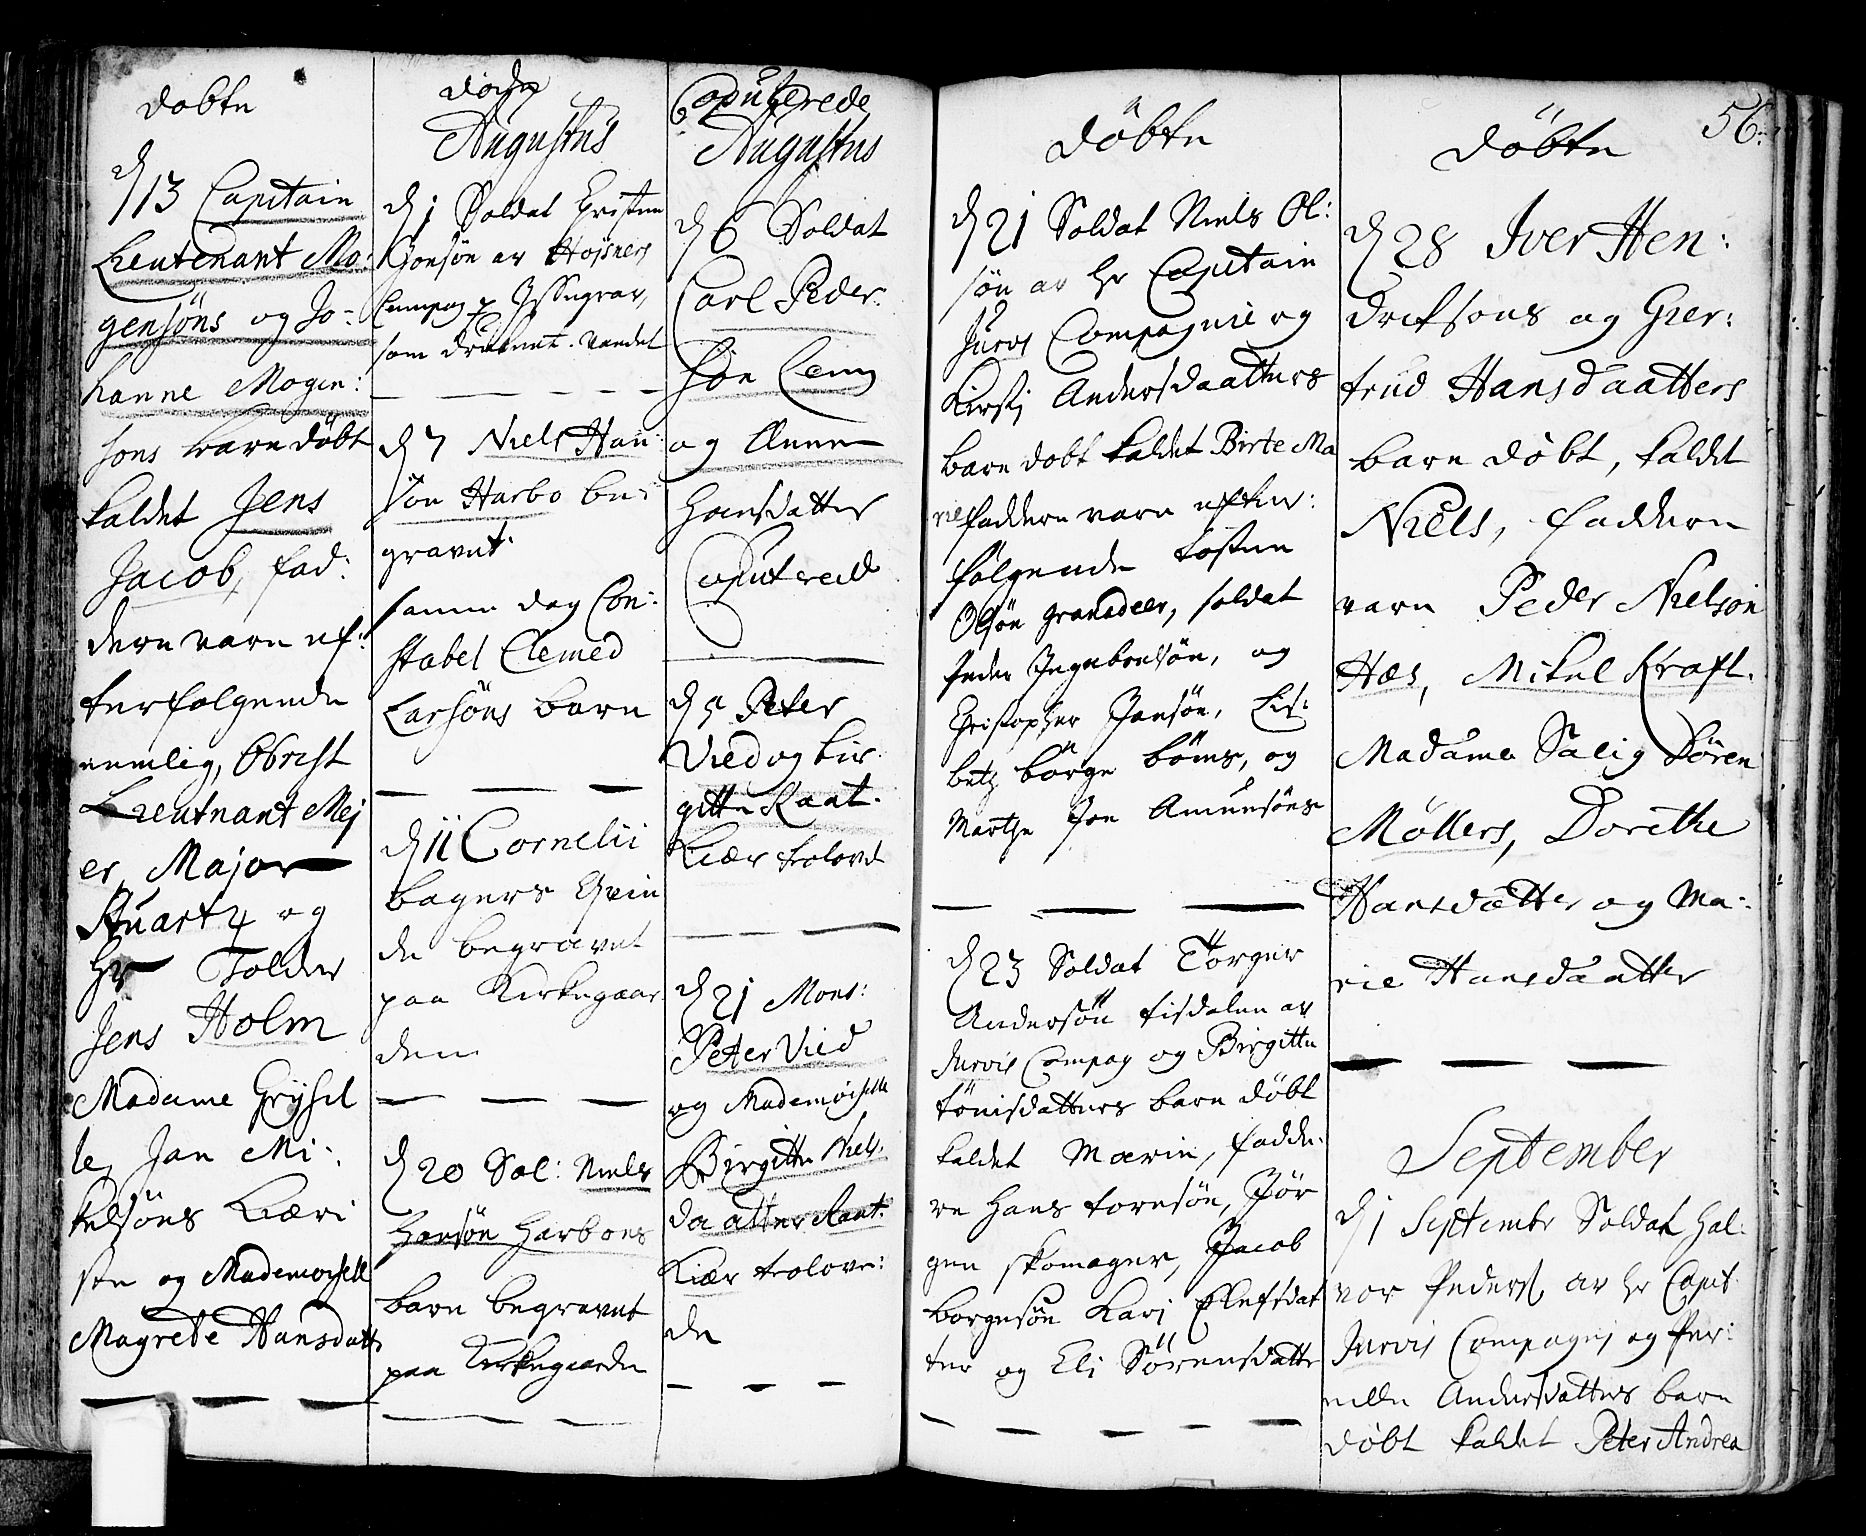 Döbte
d 13 Capitain
Lieutenant Mo:
gensöns og Jo:
hanne Mogen:
sons barn döbt
kaldet Jens
Jacob, fad:
derne vare ef:
terfölgende
nemlig, Obrist
Lieutnant Mej
er, Major
Stuart og
Hr Tolder
Jens Holm
Madame Grÿsel
le, Jan Mi:
kelsöns Kieri
ste og Mademoiselle
Magrete Hansdatt
döde
Augustus
d 1 Soldat Christen
Jonsön av
Compag
som druknet vandet
d 7 Niels Han:
sön Harbo be:
gravet
samme dag Con:
stabel Clemed
Larsöns barn
d 11 Cornelii
bagers Qvin
de begravet
paa Kirkegaar
den
d 20 Sol: Niels
Hansön Harboes
barn begravet
paa Kirkegaarden
Copulerede
Augustus
d 6 Soldat
Carl Peder
sön
og Anne
Hansdatter
Copulerede
d 5 Peter
Vied og bir
gitte Rant.
Kiær trolovd
d 21 Mons:
Peter Vied
og Mademoiselle
Birgitte Niels
daatter Rant:
Kiær trolove:
de
Döbte
d 21 Soldat Niels Ol:
sön av Hr Capitain
Jurvs Compagnie og
Kirsti Andersdaatters
barn döbt kaldet Birte Ma
rie faddere vare efter:
fölgende Tosten
Olsön Granadeer, soldat
Peder Ingebretsön, og
Christopher Jansön, Lis:
bet börge böms, og
Marthe Jon Amunsöns
d 23 Soldat Törger
Andersön Tisdalen av
Jurvis Compag og Birgitte
Tönisdatters barn döbt
kaldet Marin, fadde:
re Hans Torresön, Jör
gen Skomager, Jacob
Borgesön Kari Elefsdat
ter og Eli Sörensdatte
56.
Döbte
d 28 Iver Hen:
driksons og Gier:
trud Hansdaatters
barn döbt, kaldet
Niels, faddere
vare Peder Nielsön
Hæs, Mikel Kraft.
Madame Salig Sören
Möllers, Dorethe
Hansdatter og Ma:
rie Hansdaatter
September
d 1 Septembr Soldat Hal:
vor Peders av Hr Capit
Jurvis Compagni og Per:
nille Andersdatters barn
döbt kaldet Peter Andrea